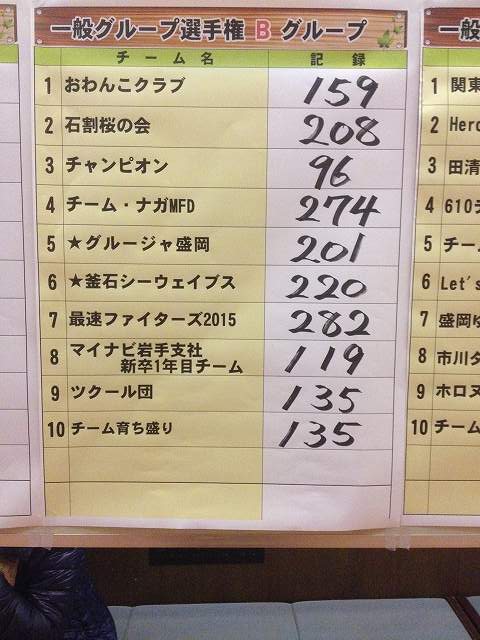 一般グループ選手権 B グループ
チーム名 記録
1 おわんこクラブ 159
2 石割桜の会 208
3 チャンピオン 96
4 チーム・ナガMFD 274
5 ★グルージャ盛岡 201
6 ★釜石シーウェイブス 220
7 最速ファイターズ2015 282
8 マイナビ岩手支社
新卒1年目チーム 119
9 ツクール団 135
10 チーム育ち盛り 135
一般
1 関東
2 Hero
3 田清
4 610
5 チー
6 Let's
7 盛岡
8 市川
9 ホロヌ
10 チーム